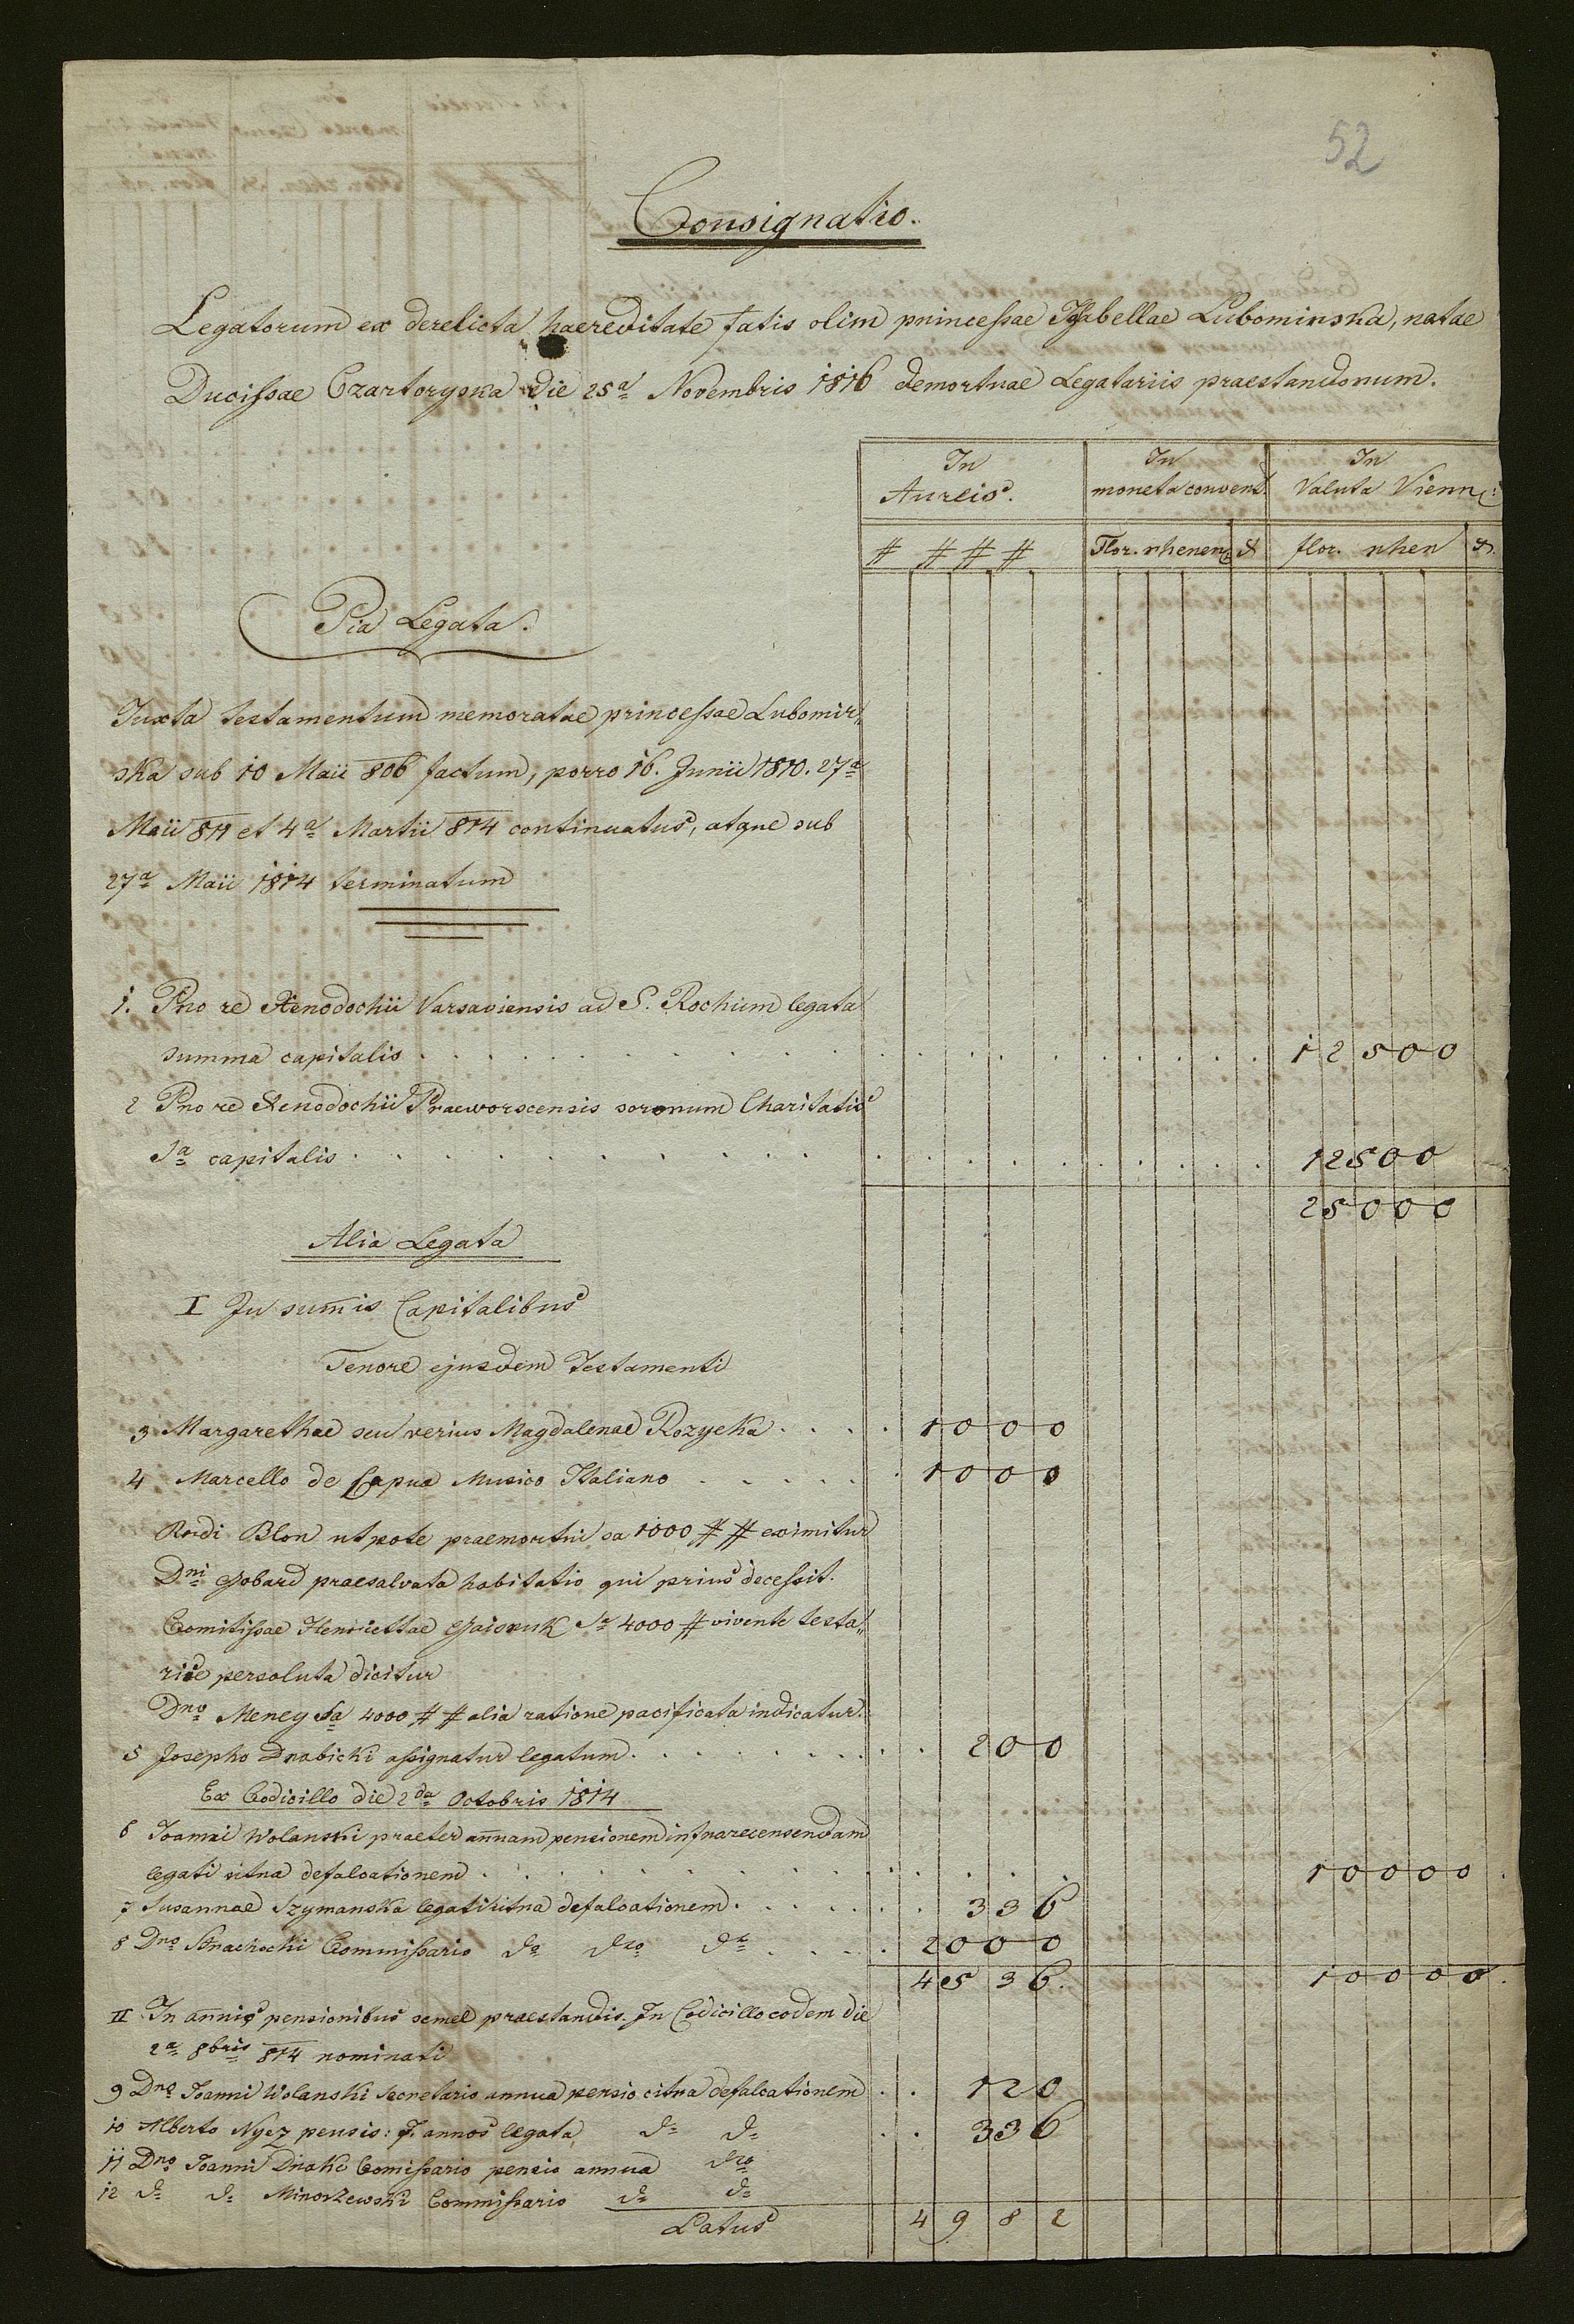 52
Consignatio.
Legatorum ex derelicta haereditate fatis olim principessae Isabellae Lubomirska, natae
Ducissae Czartoryska die 25a Novembris 1816 demortuae Legatariis praestandorum.
In Aureis. In moneta convent. In Valuta Vienn:
# # # # Flor. rhenen x flor. rhen x.
Pia Legata.
Juxta testamentum memoratae principessae Lubomir„
ska sub 10 Maii 806 factum, porro 16. Junii 1810. 27a
Maii 811 et 4a Martii 814 continuatus, atque sub
27a Maii 1814 terminatum
1. Pro re Xenodochii Varsaviensis ad S. Rochum legata
summa capitalis . . . . . 12500
2 Pro re Xenodochii Praeworscensis sororum Charitatis
Sa capitalis . . . . . 12500
25000
Alia Legata
I In sumis Capitalibus
Tenore ejusdem Testamenti
3 Margarethae seu verius Magdalenae Rozycka . . . . 1000
4 Marcello de Capua Musico Italiano . . . . . 1000
Blon utpote praemortui sa 1000 # # eximitur
Dni Gobard praesalvata habitatio qui prius decessit.
Comitissae Henriettae Sa 4000 # vivente testa„
rice persoluta dicitur
Dno Meney Sa 4000 # # alia ratione pacificata indicatur.
5 Josepho Drabicki assignatur legatum . . . . . 200
Ex Codicillo die 2da Octobris 1814
6 Joanni Wolanski praeter annam pensionem infra recensendam
legati citra defalcationem . . . . . 10000
7 Susannae Szymanska legati citra defalcationem . . . . . 336
8 Dno Commissario do dto do . . . . 2000
4536. 10000.
II In annis pensionibus semel praestandis. In Codicillo eodem die
2a 8bris 814 nominati
9 Dno Joanni Wolanski Secretario annua pensio citra defalcationem . . 120
10 Alberto Nyez pensis: annos legata do do . . 336
11 Dno Joanni Comissario pensio annua dto
12 do do Commissario do do
Latus 4982